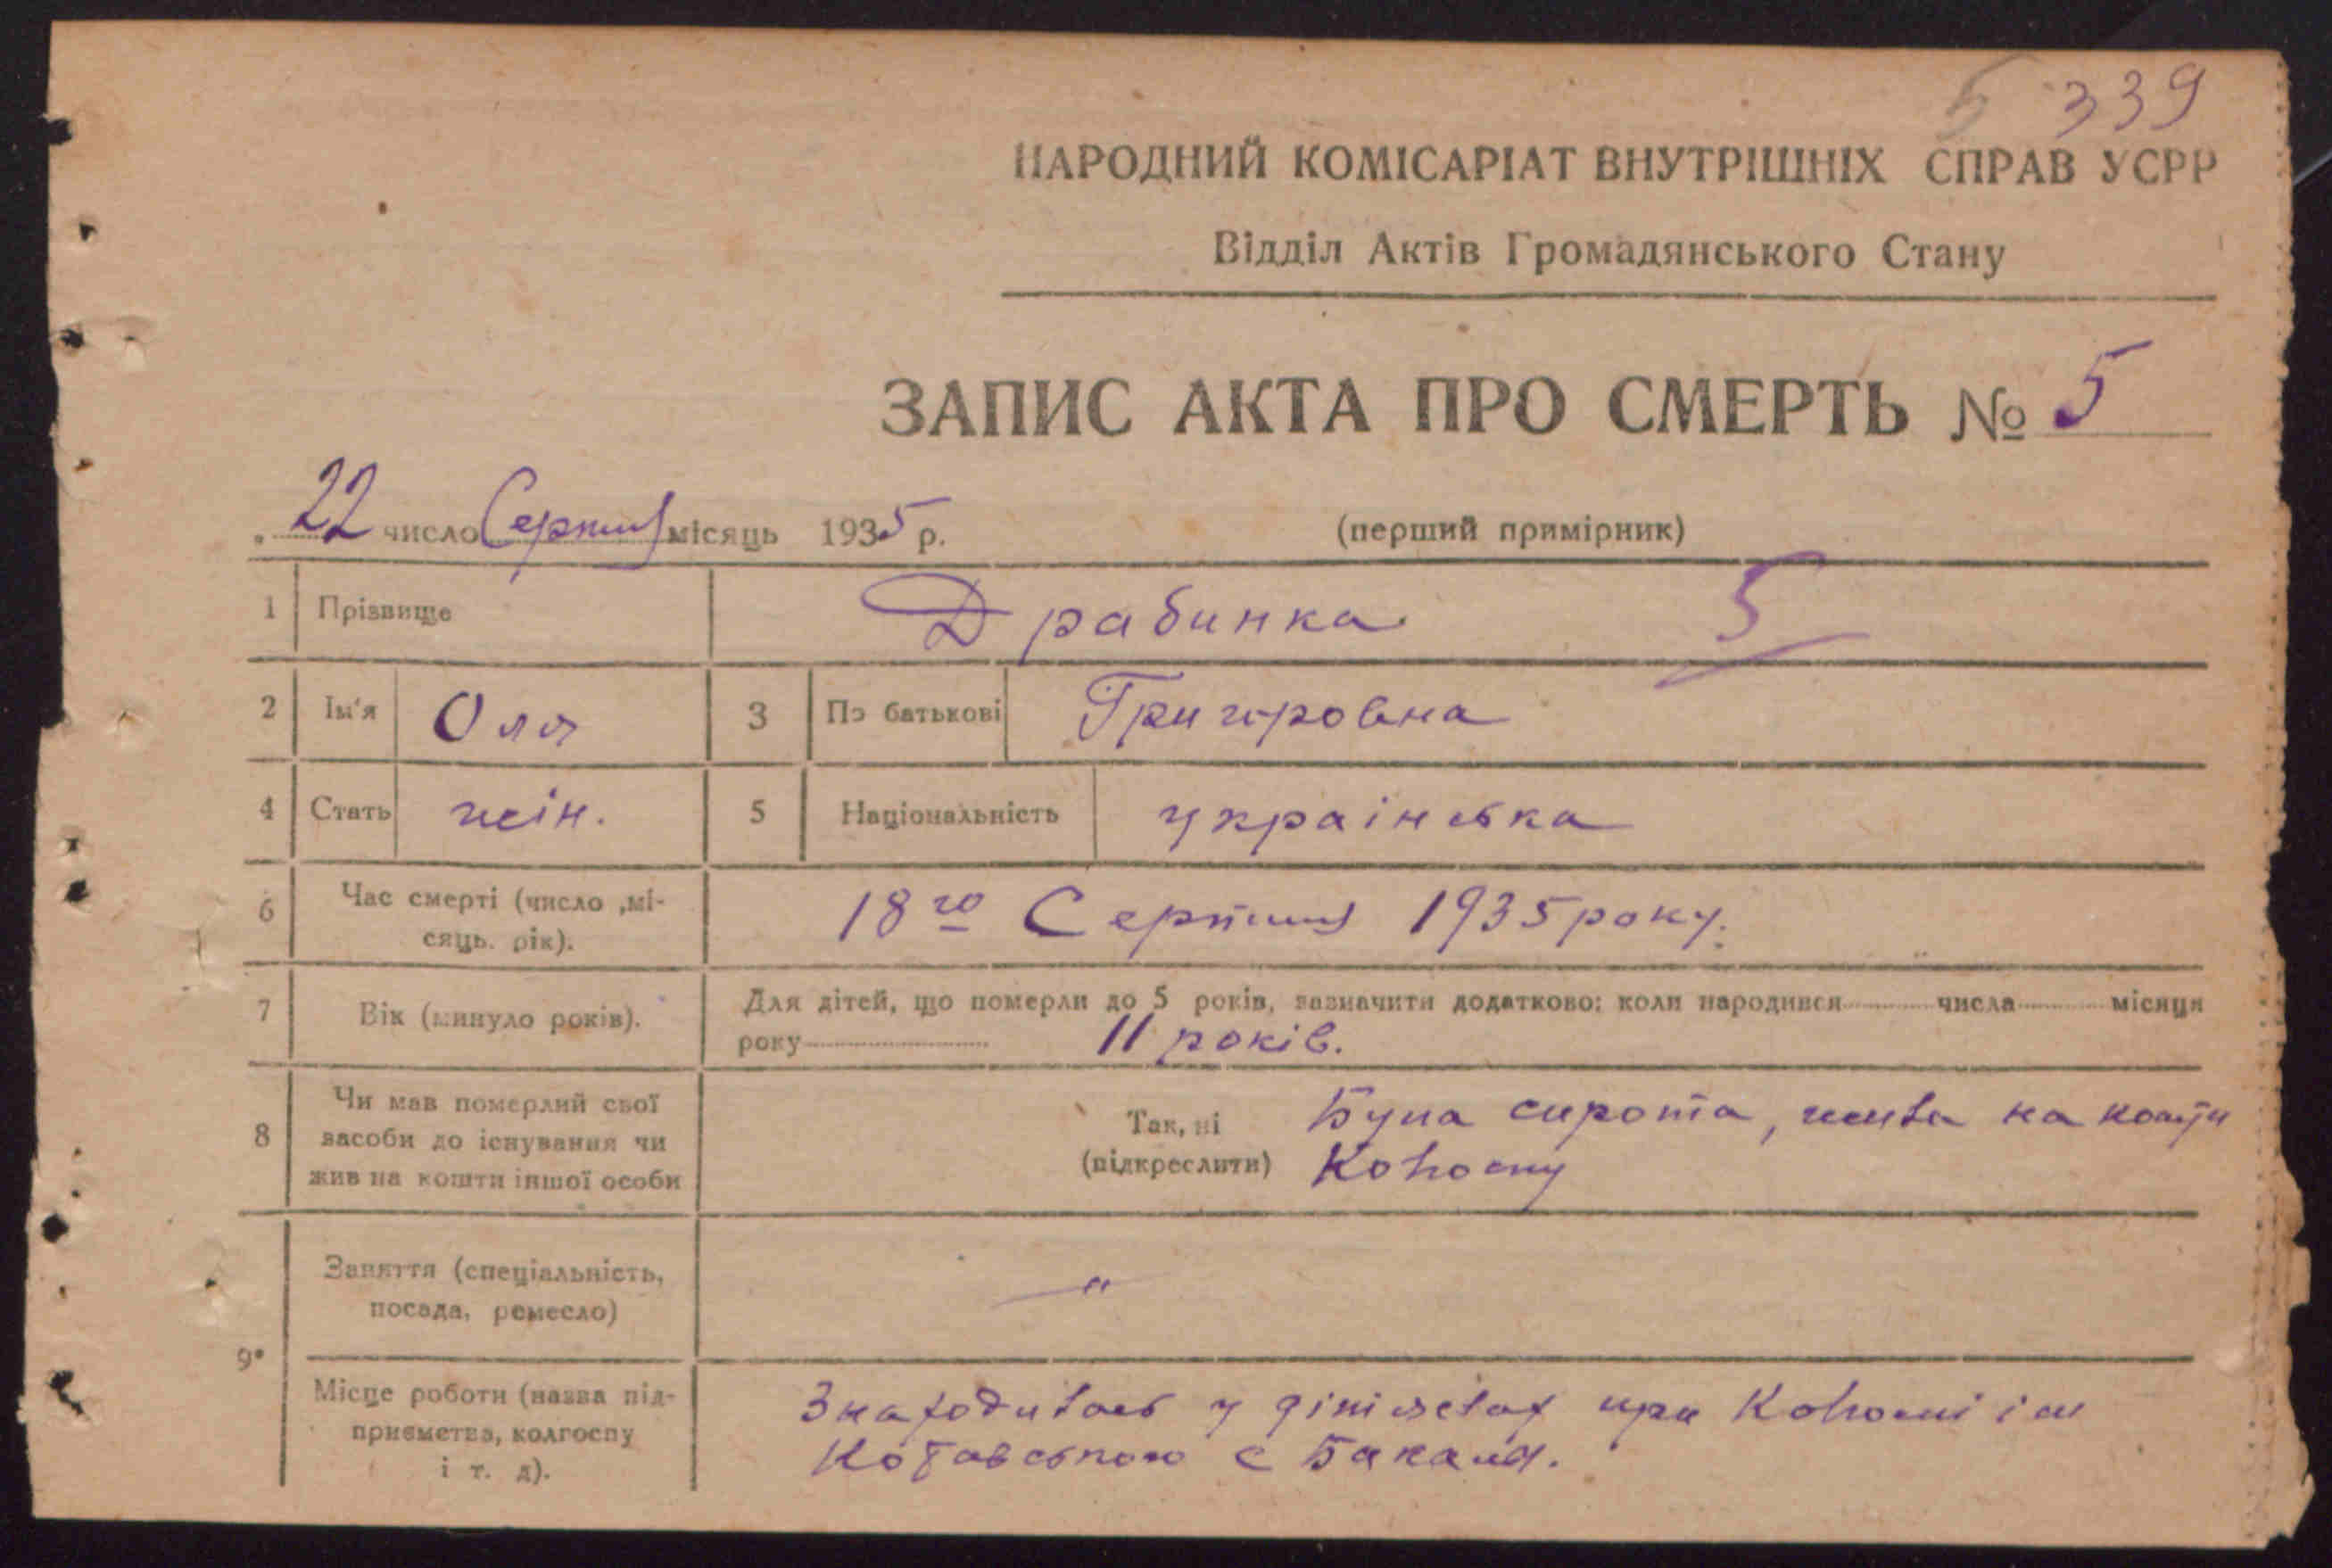 5 339
НАРОДНИЙ КОМІСАРІАТ ВНУТРІШНІХ СПРАВ УСРР
Відділ Актів Громадянського Стану
ЗАПИС АКТА ПРО СМЕРТЬ № 5
22 число Серпня місяць 1935 р. (перший примірник)
1 Прізвище Драбинка 5
2 Ім'я Оля 3 По батькові Григоровна
4 Стать жін. 5 Національність українська
6 Час смерті (число ,мі-
сяць. рік). 18го Серпня 1935 року.
7 Вік (минуло років). Для дітей, що померли до 5 років, зазначити додатково: коли народився числа місяця
року 11 років.
8 Чи мав померлий свої
засоби до існування чи
жив на кошти іншої особи
Так, ні
(підкреслити)
Була сирота, жила на кошти
Колгоспу
9• Заняття (спеціальність,
посада, ремесло) — "
Місце роботи (назва під-
приємства, колгоспу
і т. д).
Знаходилась у при Колгоспі ім
Котовського с